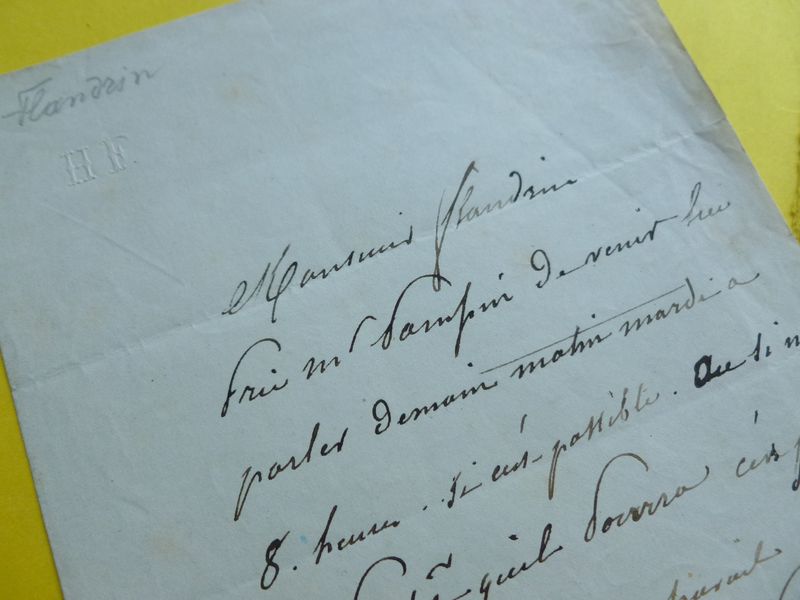 Flandrin
H F.
Monsieur flandrin
Prie mr Pampin de venir lui
parler demain matin mardi a
8. heures. Si c'est possible. Ou si
qu'il Pourra c'est
travail